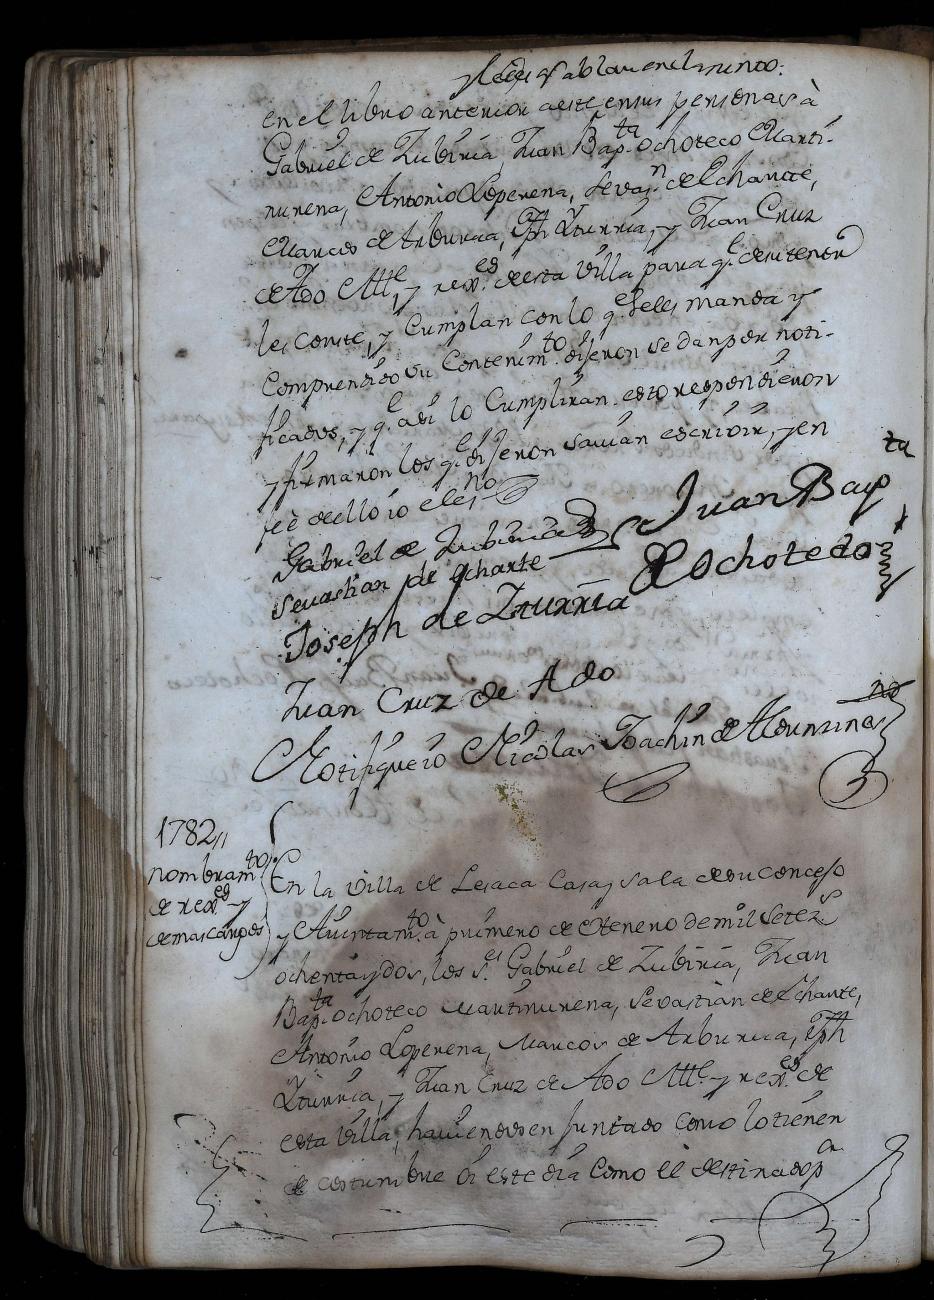 y leès q.e ablan en el asunto:
en el libro anterior a este en sus personas à
Gabriel de Zubiria, Juan Bap.ta ochoteco Marti-
nurena, Antonio Loperena, Sevas.n de Echarte,
Marcos de Arburua, Jph Yturria, y Juan Cruz
de Ado Alle, y rex.es de esta Villa para q.e de su tenor
les conste, y Cumplan con lo q.e se les manda y
Comprendido su Contenim.to dijeron se dan por noti-
ficados, y q.e asi lo Cumpliran esto respondieron
y firmaron los q.e dijeron savian escrivir, y en
feè de ello io el es.no
Gabriel de Zubiria
Juan Bap.ta
Sevastian de Echarte
Ochoteco
Joseph de Yturria
Juan Cruz de Ado
Notifiquelo Nicolas Joachin de Aldunzin es.no
1782,,
nombram.to
de rex.es y
demas cargos
En la villa de Lesaca Casa y sala de su concejo
y Aiuntam.to à primero de Henero de mil Setez.s
ochenta y dos, los S.es Gabriel de Zubiria, Juan
Bap.ta ochoteco Martinurena, Sevastian de Echarte,
Antonio Loperena, Marcos de Arburua, Jph
Yturria, y Juan Cruz de Ado Alle y rex.es de
esta Villa, haviendose en juntado como lo tienen
de costumbre oi este dia como el destinado p.a